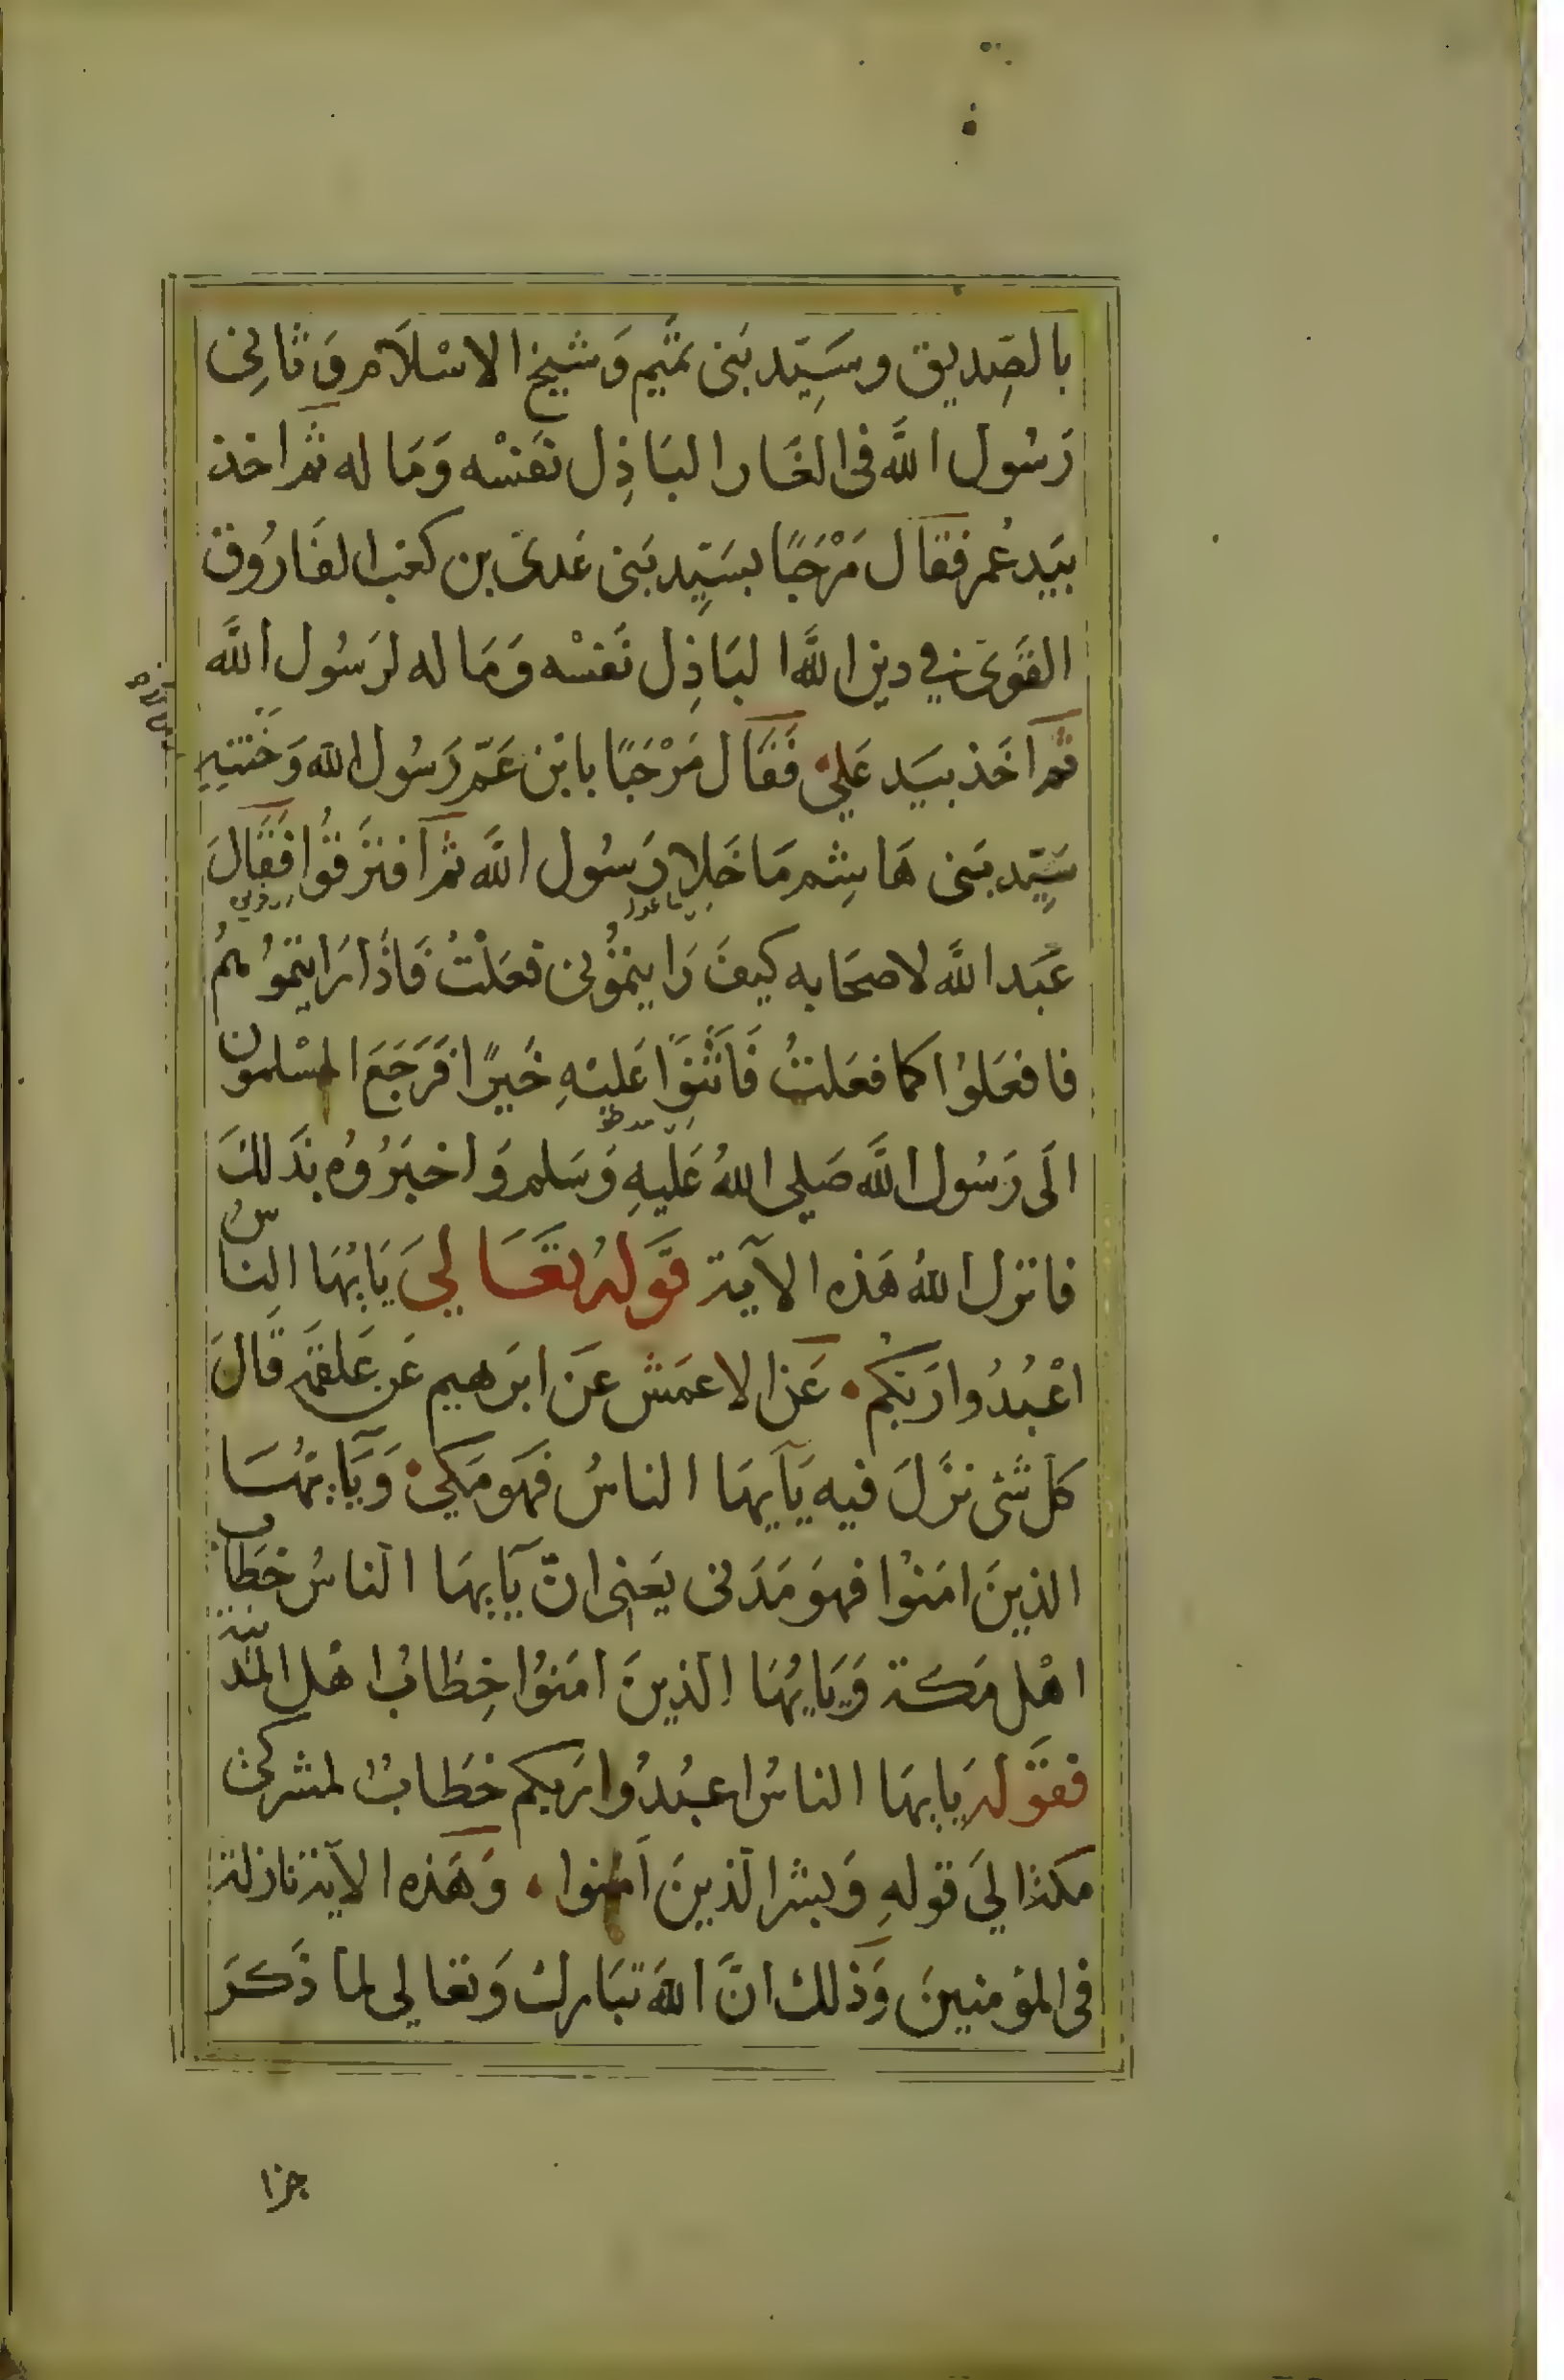 بالصِديق وسَيِّد بَنى تمَيم وَشيخ الاسْلَام وَثانِى
رَسُول اللَّه فى الغَار البَاذِل نَفسْه وَمَا له ثمَّ اخذ
بيَد عُمر فقال مَرْحَبًا بسَيِّد بَنى عَدى بن كعب الفَارُوق
القَوى في دين اللَّه البَاذِل نَفسْه وَمَا له لرَسُول اللَّه
ثمَّ اخَذ بيَد عَلي فَقَال مَرْحَبًا بابْن عَمّ رَسُول الله وَخَتنِهِ
سَيِّد بَنى هَاشِم مَا خَلا رَسُول اللَّه ثمَّ افتَرَقُوا فَقَالَ
عَبَد اللَّه لاصحَابه كيفَ رَايتمُونى فعَلْتُ فَاذَا رَايتمُوُهُم
فافعَلوُا كما فعَلتُ فَاَثنَوَا عَليْهِ خَيرًا فَرَجَعَ المسْلمون
الَى رَسُول اللَّه صَلى اللهُ عَليهِ وَسَلم وَاخبَرُوُه بذَلكَ
فانزل اللهُ هَذه الآية قَولهُ تعَالىَ يَايُهَا النِاسُ
اعْبُدُوا رَبكُم ٠ عَن الاعمَش عَن ابرَهيم عَن عَلقمَة قالَ
كل شَئ نزَّلَ فيه يَآيهَا الناسُ فهَو مَكي وَيَآيهَا
الذينَ امَنوُا فهوَ مَدَنى يعَنى انّ يَآيهَا الناسُ خطَابُ
اهْل مَكة وَيَايُهَا الذينَ امَنوُا خِطَابُ اهْل المدَينة
فقوَله يَايهَا الناسُ اعبُدُوا رَبكم خطَابُ لمشركى
مكة الىَ قولهِ وَبشر الذينَ اَمنوا ٠ وَهَذه الاَية نازلة
فى المؤمنيِنَ وَذَلك انَّ اللهَ تبَارك وَتعَالى لما ذَكرَ
جزا